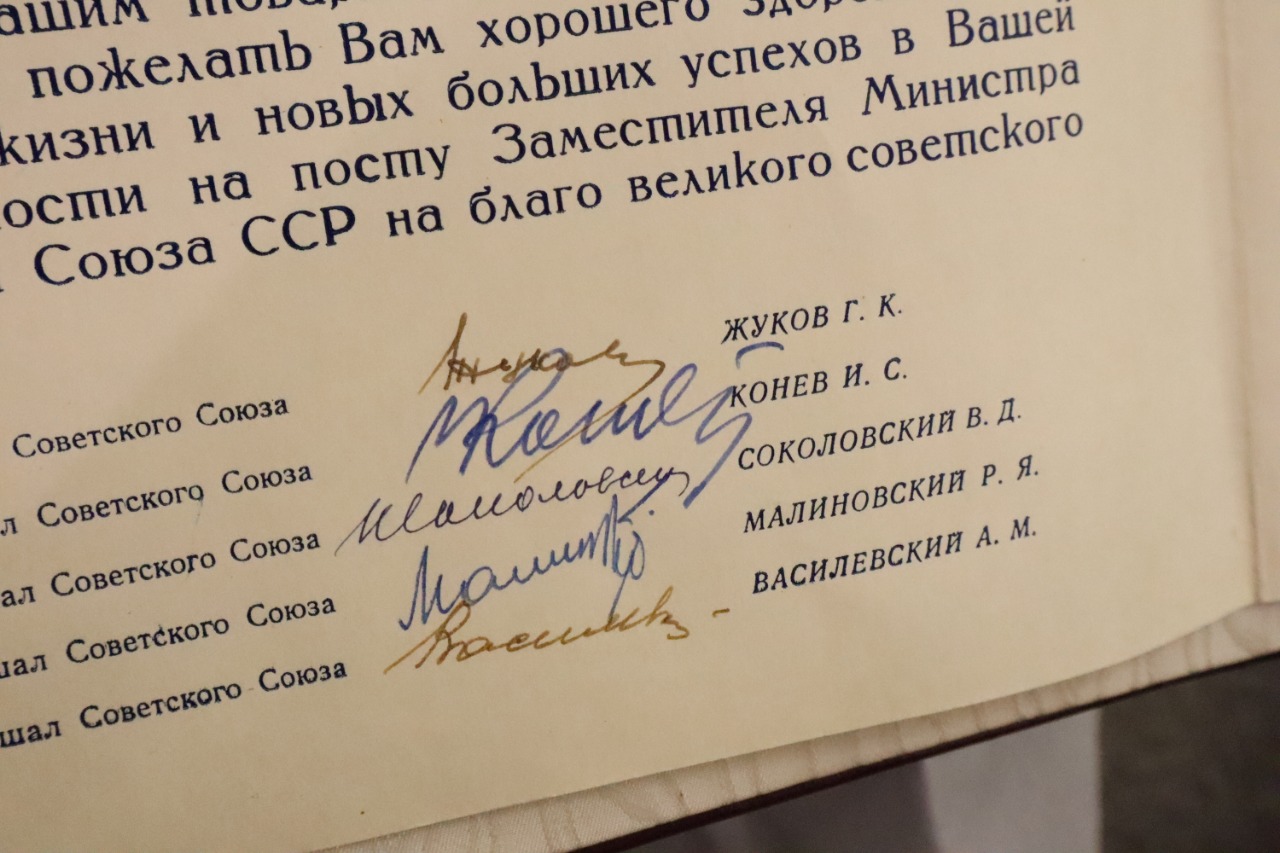 ашим товар
пожелать Вам хорошего здор
жизни и новых больших успехов в Вашей
ости на посту Заместителя Министра
Союза ССР на благо великого советского
Советского Союза Жуков ЖУКОВ Г. К.
л Советского Союза Конев КОНЕВ И. С.
ал Советского Союза Соколовский СОКОЛОВСКИЙ В. Д.
шал Советского Союза МАЛИНОВСКИЙ Р. Я.
шал Советского Союза ВАСИЛЕВСКИЙ А. М.